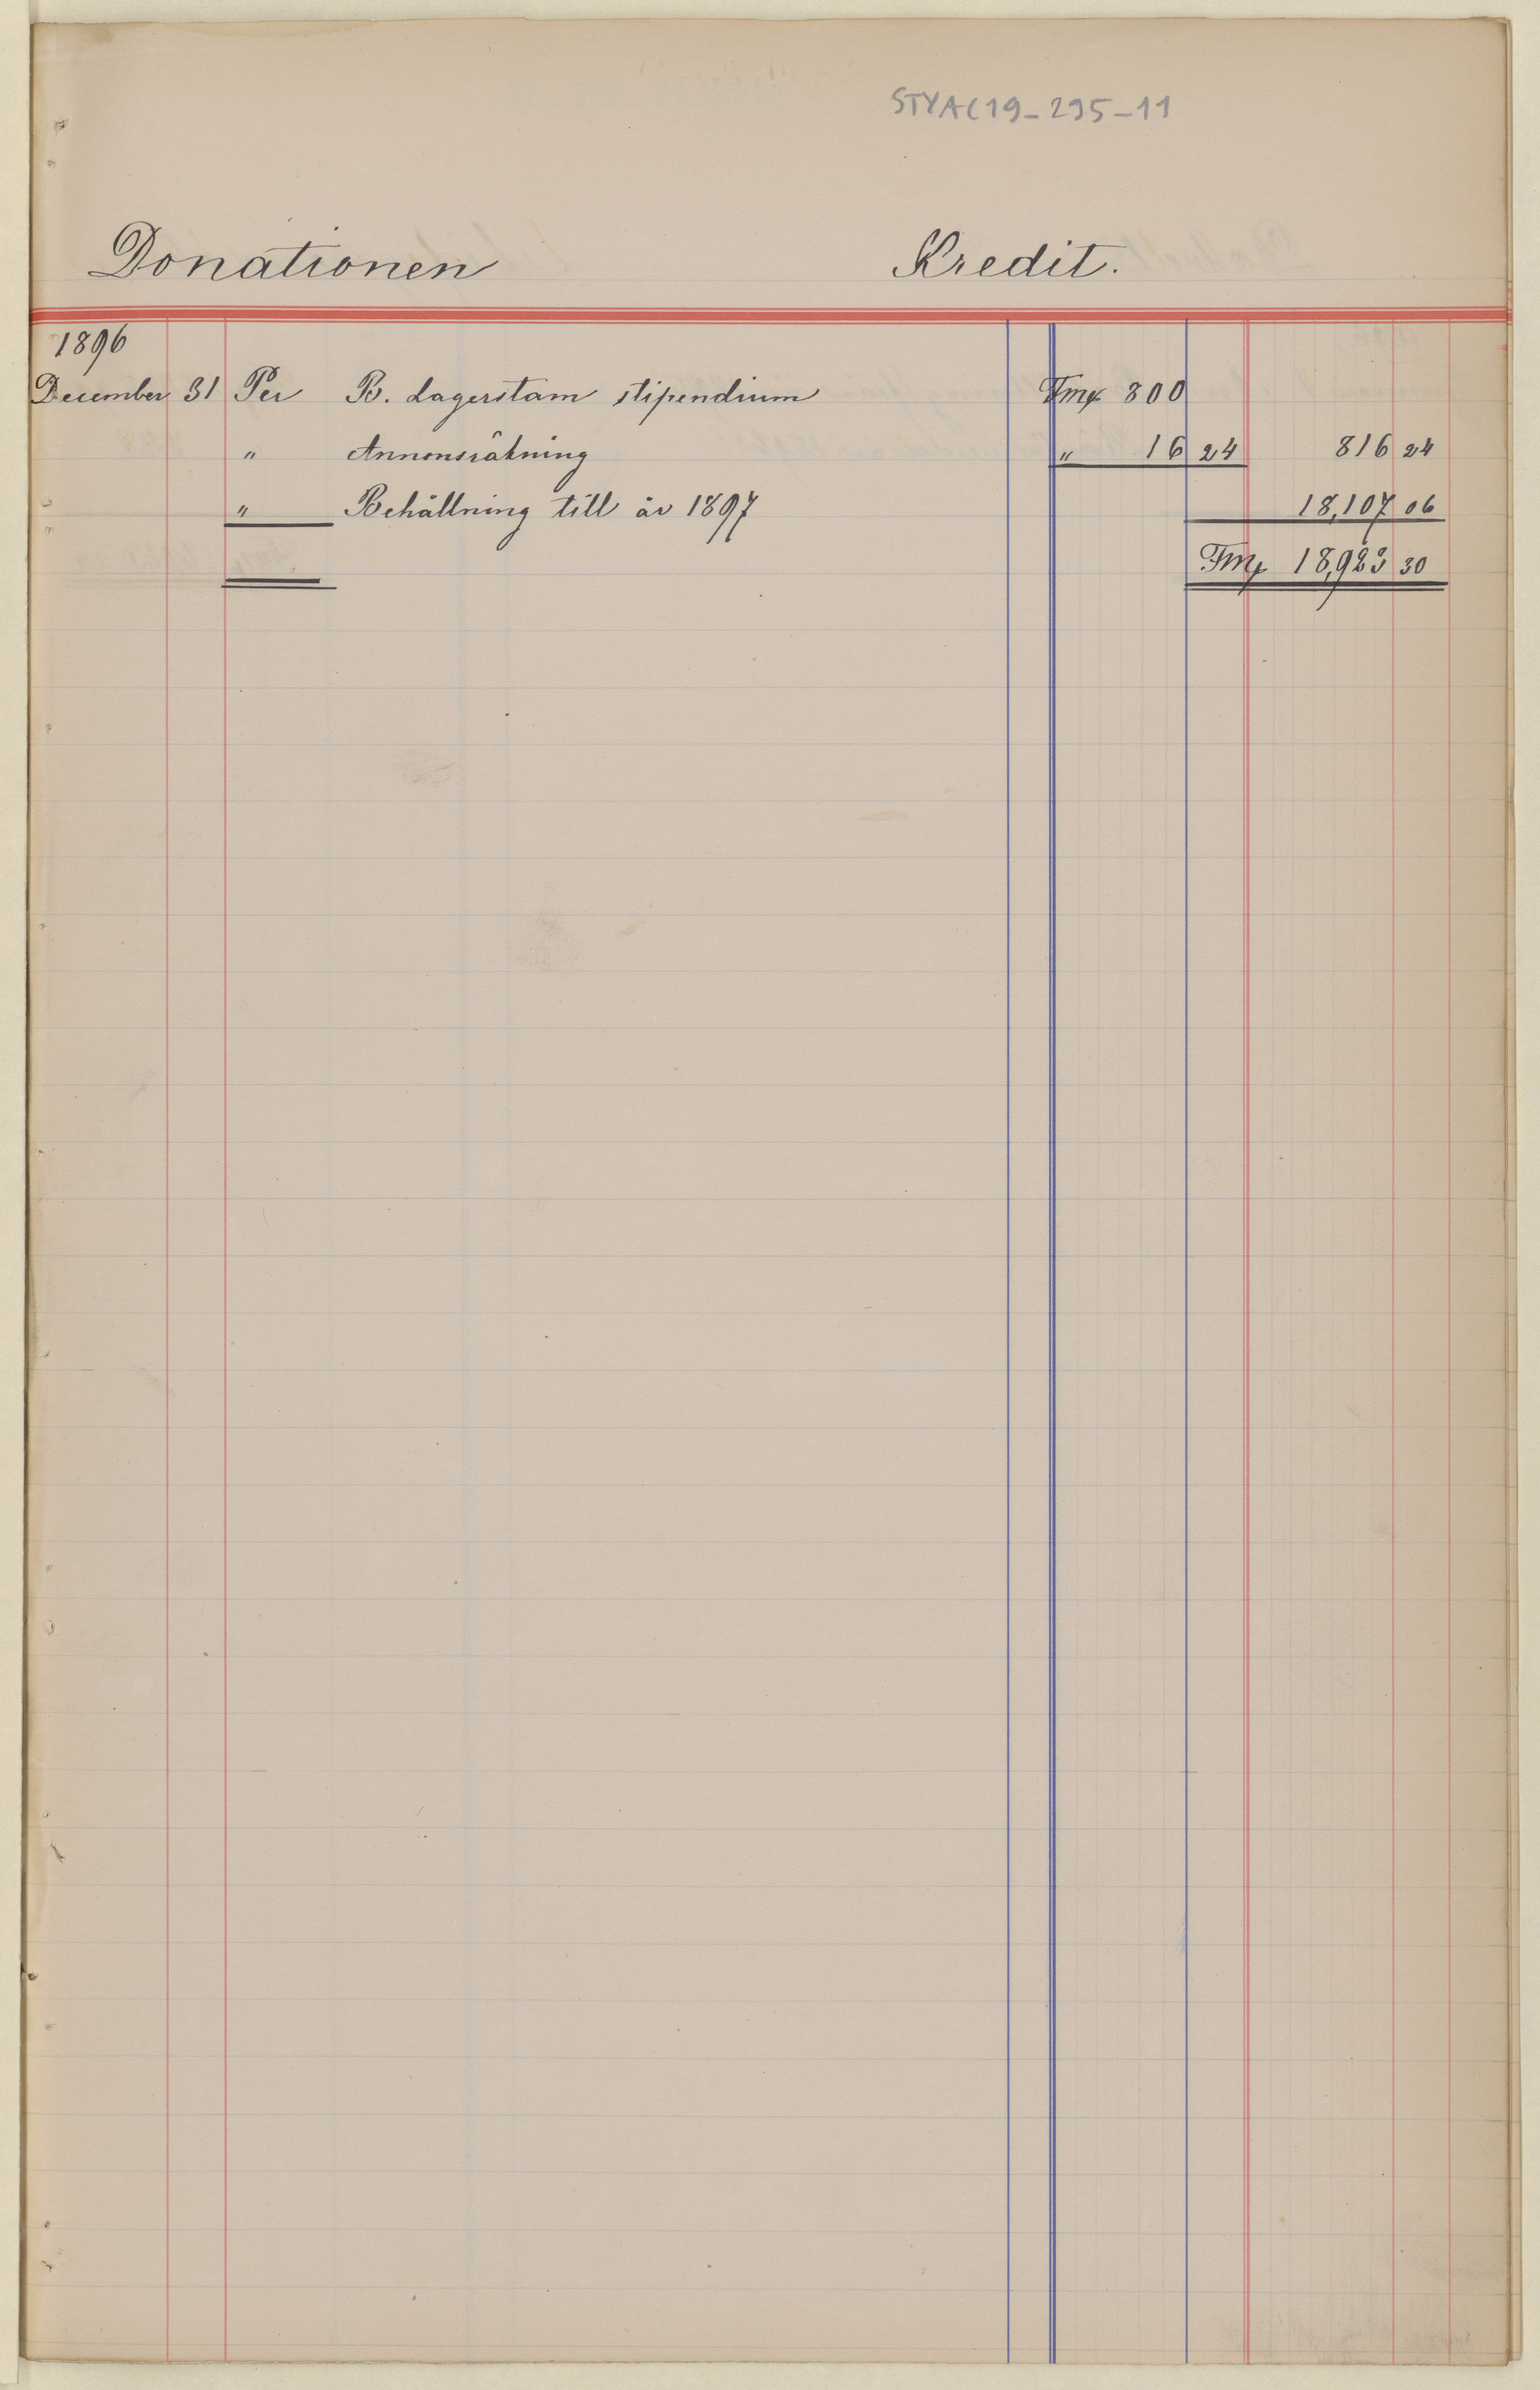 STYAC19_295_11
Donationen Kredit.
1896
December 31 Per B. Lagerstam stipendium Fmk 800
" Annonsräkning " 16 24 816 24
" Behållning till år 1897 18,107 06
Fmk 18,923 30